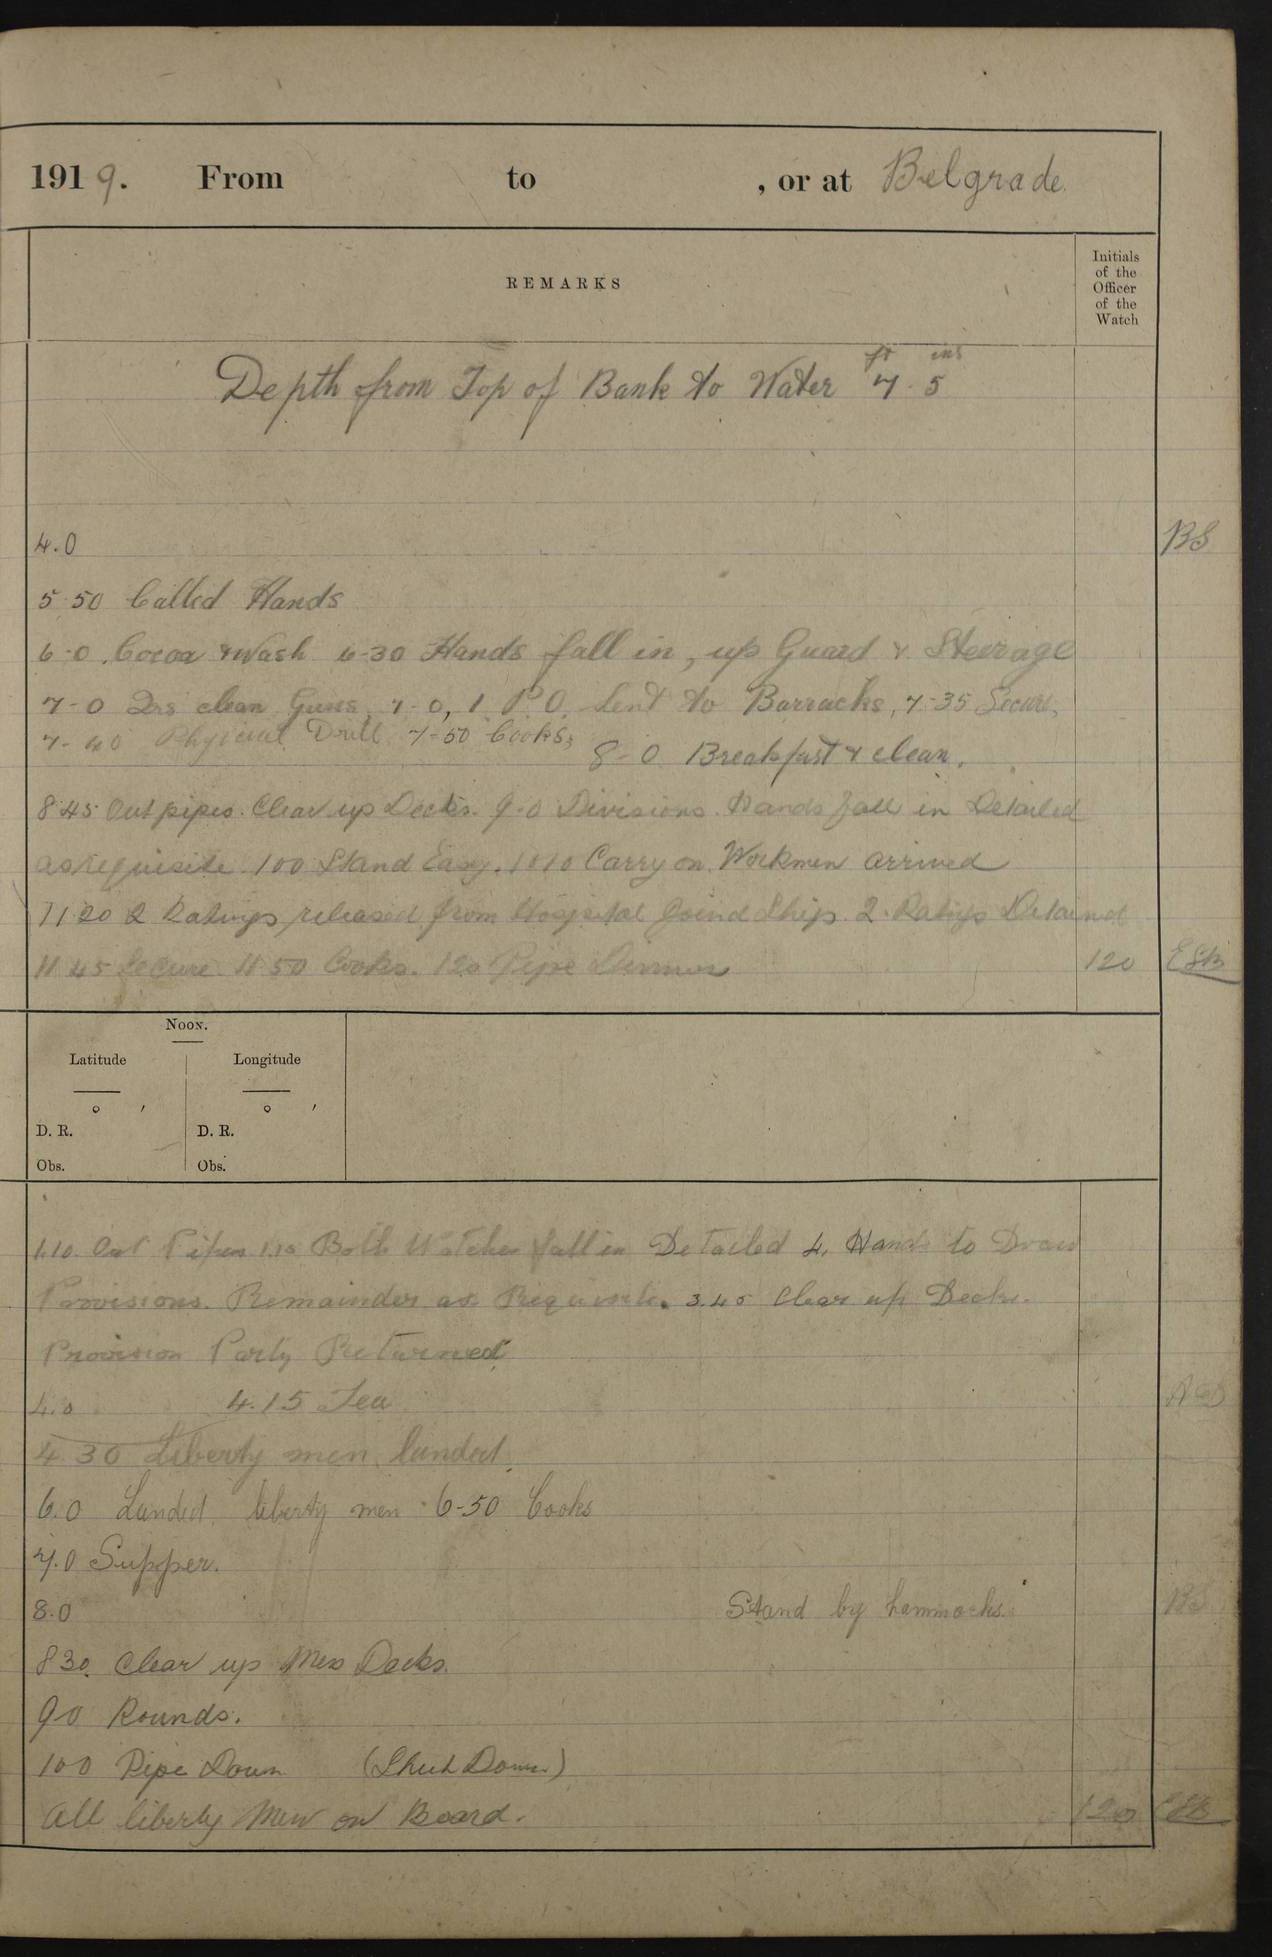 1919. From to , or at Belgrade.
REMARKS
Initials of the Officer of the Watch
ft ins
Depth from Top of Bank to Water 7. 5
4.0 BS
5.50 Called Hands
6-0. Cocoa & Wash 6-30 Hands fall in, up Guard & Steerage
7-0 Qrs clean Guns, 7-0, 1 P.O. Sent to Barracks, 7-35 Secure,
7-40 Physical Drill 7-50 Cooks, 8-0 Breakfast & clean.
8 45 Out pipes. Clear up Decks. 9-0 Divisions. Hands fall in Detailed
as requisite. 100 Stand Easy. 1010 Carry on. Workmen arrived
11 20 2 Ratings released from Hospital Joind Ship. 2. Ratings Detained
11 45 Secure 11 50 Cooks. 120 Pipe Dinner 120
Noon.
Latitude Longitude
° ′ ° ′
D. R. D. R.
Obs. Obs.
1.10. Out Pipes 1.15 Both Watches fall in Detailed 4. Hands to Draw
Provisions. Remainder as Requisite. 3.45 Clear up Decks.
Provision Party Returned.
4.0 4.15 Tea
4 30 Liberty men landed.
6.0 Landed liberty men 6-50 Cooks
7.0 Supper.
8.0 Stand by hammocks. BS
8 30. Clear up Mess Decks.
90 Rounds.
100 Pipe Down (Shut Down)
All liberty Men on Board. 120